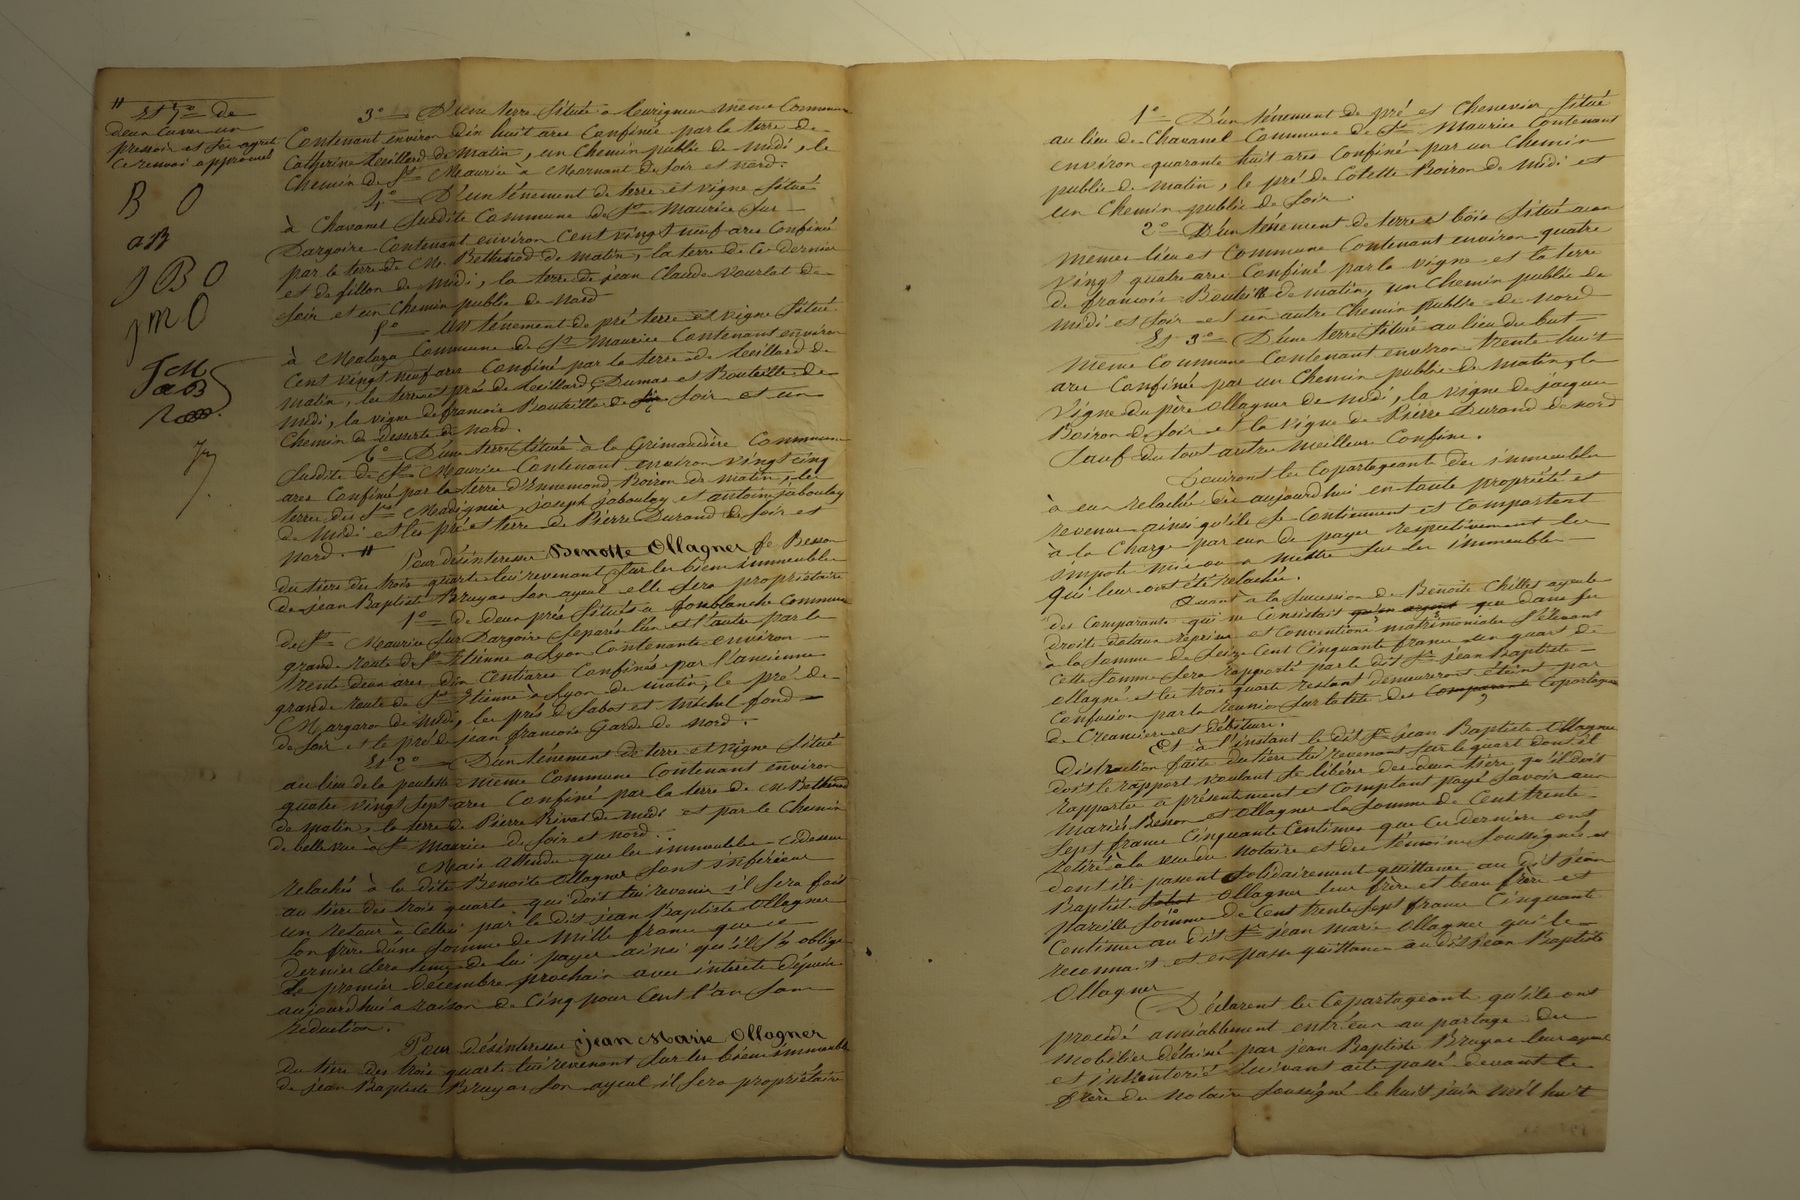 " Et 7.o de
deux cuves un
pressoir et ses agrès
ce renvoi approuvé
B O
aB
J B O
J M O
3.o D'une terre située à même Commune
Contenant environ dix huit ares Confinée par la terre de
Catherine de matin, un Chemin public de midi, le
Chemin de St. Maurice à Mornant de soir et nord.
4.o D'un tènement de terre et vigne situé
à Chavanel susdite Commune de St. Maurice sur
Dargoire Contenant environ cent vingt neuf ares Confiné
par la terre de Mr. Bethenod de matin, la terre de ce dernier
et de fillon de midi, la terre de jean Claude Vourlat de
soir et un Chemin public de nord
5.o un tènement de pré terre et vigne situé
à Commune de St. Maurice Contenant environ
cent vingt neuf ares Confiné par la terre de de
matin, les terre et prés de Dumas et Bouteille de
midi, la vigne de francois Bouteille de soir et un
Chemin de desserte de nord.
6.o D'une terre située à la Grimaudière Commune
susdite de St. Maurice Contenant environ vingt cinq
ares Confiné par la terre d'Ennemond Boiron de matin, les
terres des Srs. Madignier, joseph jaboulay et antoine jaboulay
de Midi et les pré et terre de Pierre Durand de soir et
nord. " Pour désintéresser Benoite Ollagner fe Besson
du tiers des trois quarts lui revenant sur les biens immeubles
de jean Baptiste Bruyas son ayeul elle sera propriétaire
1.o de deux prés situés à fonblanche Commune
de St. Maurice sur Dargoire séparés l'un et l'autre par la
grande route de St. Etienne à Lyon Contenants environ
trente deux ares dix Centiares Confinés par l'ancienne
grande route de St. Etienne à Lyon de matin, le pré de
Margaron de midi, les prés de Sabot et michel fond
de soir et le pré de jean francois Garde de nord.
Et 2.o D'un tènement de terre et vigne situé
au lieu de la même Commune Contenant environ
quatre vingt sept ares Confiné par la terre de M Bethenod
de matin, la terre de Pierre Rivat de midi et par le Chemin
de belle vue à St. Maurice de soir et nord.
Mais attendu que les immeubles cidessus
relachés à la dite Benoite Ollagner sont inférieur
au tiers des trois quarts qui doit lui revenir il sera fait
un retour à celleci par le dit jean Baptiste Ollagner
son frère d'une somme de mille francs que ce
dernier sera tenu de lui payer ainsi qu'il s'y oblige
le premier décembre prochain avec intérêts dépuis
aujourd'hui à raison de Cinq pour Cent l'an sans
réduction.
Pour désintéresser jean Marie Ollagner
du tiers des trois quarts lui revenant sur les biens immeubles
de jean Baptiste Bruyas son ayeul il sera propriétaire
1.o D'un tènement de pré et Chenevier situé
au lieu de Chavanel Commune de St. Maurice Contenant
environ quarante huit ares Confiné par un Chemin
public de matin, le pré de Colette Boiron de Midi et
un Chemin public de soir.
2.o D'un tènement de terre et bois situé aux
mêmes lieu et Commune Contenant environ quatre
vingt quatre ares Confiné par la vigne et la terre
de francois Bouteille de matin, un Chemin public de
midi et soir et un autre Chemin public de nord
Et 3.o D'une terre située au lieu du but
même Commune Contenant environ trente huit
ares Confiné par un Chemin public de matin, la
vigne du père Ollagner de midi, la vigne de jacques
Boiron de soir et la vigne de Pierre Durand de nord
Sauf du tout autres meilleurs Confins.
Jouiront les Copartageants des immeubles
à eux relachés dès aujourd'hui en toute propriété et
revenus ainsi qu'ils se Contiennent et Comportent
à la Charge par eux de payer respectivement les
impots mis ou à mettre sur les immeubles
qui leur ont été relachés.
Quant à la succession de Benoite Chillet ayeule
des Comparants qui ne Consistait qu'en argent que dans ses
droits dotaux reprises et Conventions matrimoniales s'élevant
à la somme de seize Cent Cinquante francs un quart de
cette somme sera rapporté par le dit Sr. jean Baptiste
Ollagner et les trois quarts restant demeureront éteint par
Confusion par la reunion sur la tête des Comparants Copartageants
de Créanciers et débiteurs.
Et à l'instant le dit Sr. jean Baptiste Ollagner
Distraction faite du tiers lui revenant sur le quart dont il
doit le rapport voulant se libérer des deux tiers qu'il doit
rapporter à présentement et Comptant payé savoir aux
mariés Besson et Ollagner la somme de Cent trente
sept francs Cinquante Centimes que ces derniers ont
retiré à la vue du Notaire et des témoins soussignés et
dont ils passent solidairement quittance au dit jean
Baptiste Ollagner leur frère et beau frère et
pareille somme de Cent trente sept francs Cinquante
Centimes au dit Sr. jean marie Ollagner qui le
reconnait et en passe quittance au dit jean Baptiste
Ollagner
Déclarent les Copartageants qu'ils ont
procédé amiablement entr'eux au partage du
mobilier délaissé par jean Baptiste Bruyas leur ayeul
et inventorié suivant acte passé devant le
frère du Notaire soussigné le huit juin mil huit